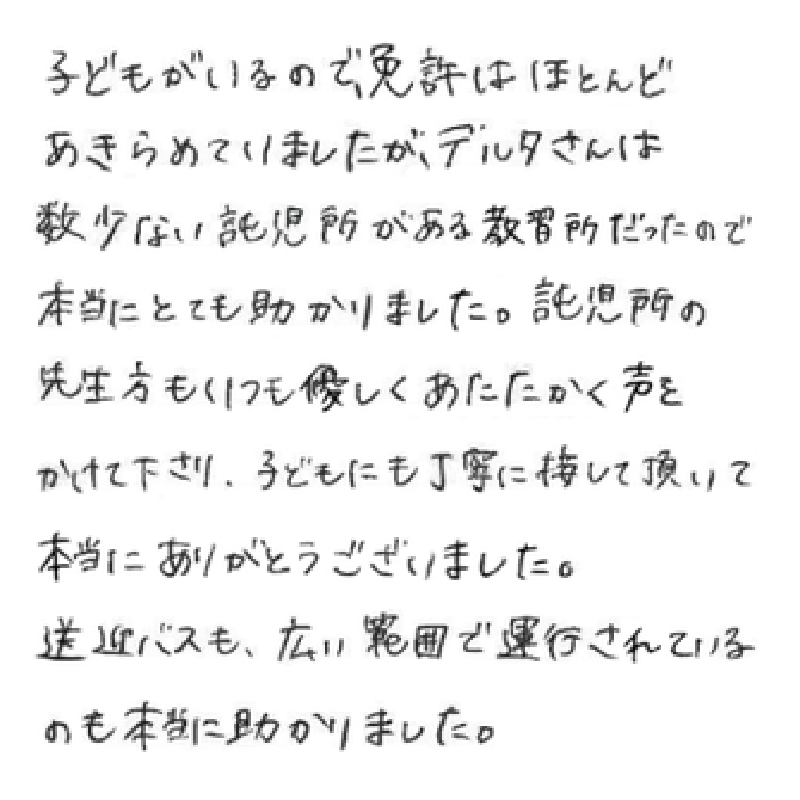 子どもがいるので、免許はほとんど
あきらめていましたが、デルタさんは
数少ない託児所がある教習所だったので
本当にとても助かりました。託児所の
先生方もいつも優しくあたたかく声を
かけて下さり、子どもにも丁寧に接して頂いて
本当にありがとうございました。
送迎バスも、広い範囲で運行されている
のも本当に助かりました。